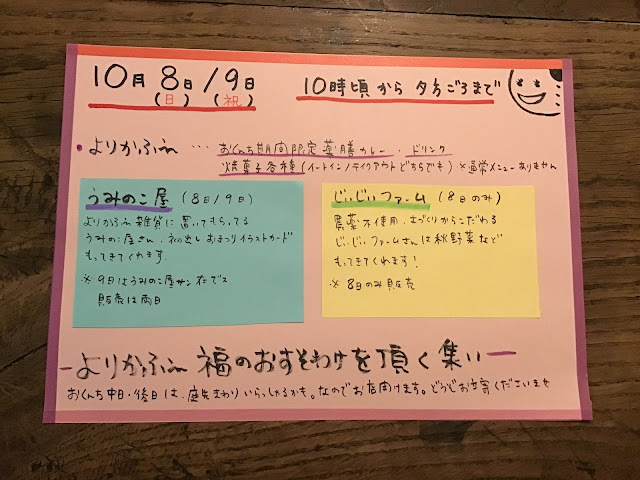 10月 8日/9日
(日) (祝)
10時頃から 夕方ごろまで
・よりかふぇ … おくんち期間限定薬膳カレー・ドリンク
焼菓子各種(イートイン/テイクアウトどちらでも) ※通常メニューありません
うみのこ屋 (8日/9日)
よりかふぇ雑貨に置いてもらってる
うみのこ屋さん、初出しおまつりイラストカード
もってきてくれます.
※ 9日はうみのこ屋サン在でス
販売は両日
じぃじぃファーム (8日のみ)
農薬不使用、土づくりからこだわる
じぃじぃファームさんは秋野菜など
もってきてくれます!
※ 8日のみ販売
ーよりかふぇ 福のおすそわけを頂く集いー
おくんち中日・後日は、庭先まわりいらっしゃるかも。なのでお店開けます。どうぞお立寄くださいませ